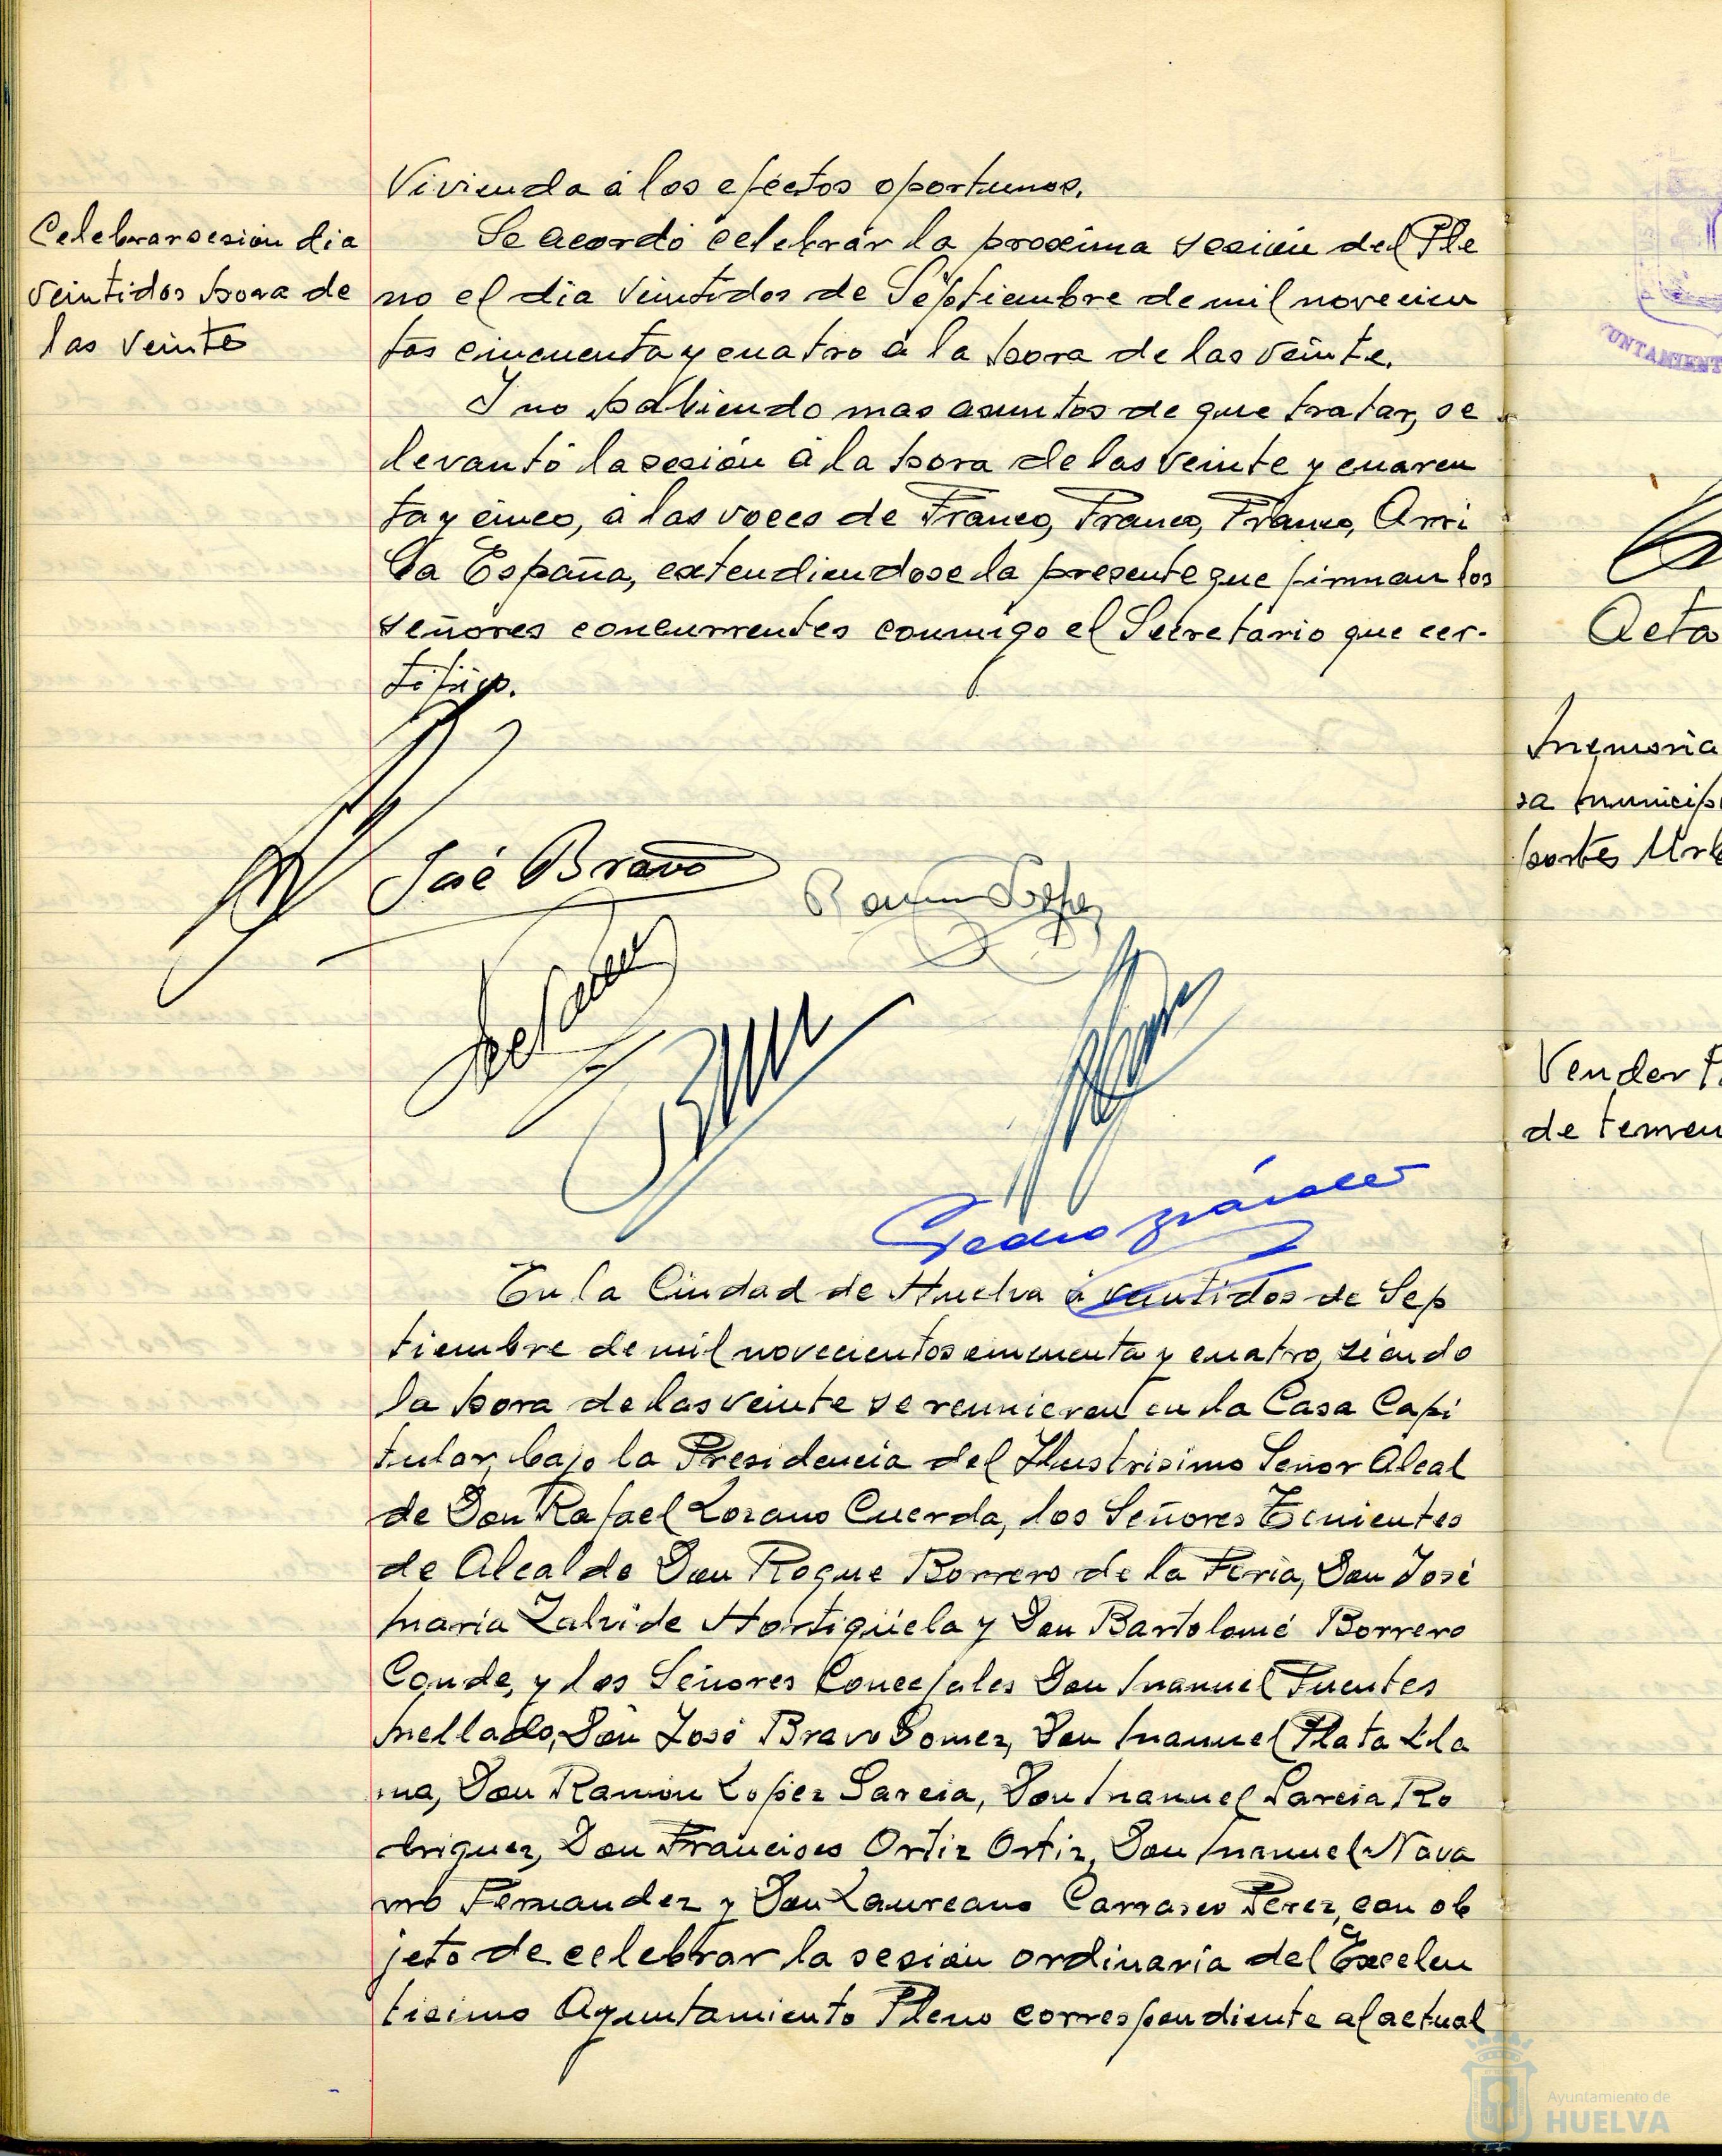 Vivienda á los eféctos oportunos.
Celebrar sesión dia
veintidos hora de
las veinte
Se acordó celebrar la proxima sesión del Ple
no el dia veintidos de Septiembre de mil novecien
tos cincuenta y cuatro á la hora de las veinte.
Y no habiendo mas asuntos de que tratar, se
levantó la sesión á la hora de las veinte y cuaren
ta y cinco, á las voces de Franco, Franco, Franco, Arri
ba España, extendiendose la presente que firman los
señores concurrentes conmigo el Secretario que cer-
tifico.
José Bravo
Ramon Lopez
Pedro
En la Ciudad de Huelva á veintidos de Sep
tiembre de mil novecientos cincuenta y cuatro, siendo
la hora de las veinte se reunieron en la Casa Capi
tular, bajo la Presidencia del Ilustrisimo Señor Alcal
de Don Rafael Lozano Cuerda, los Señores Tenientes
de Alcalde Don Roque Borrero de la Feria, Don José
Maria Zalvide Hortigüela y Don Bartolomé Borrero
Conde, y los Señores Concejales Don Manuel Fuentes
Mellado, Don José Bravo Gomez, Don Manuel Plata Lla
ma, Don Ramón Lopez Garcia, Don Manuel Garcia Ro
driguez, Don Francisco Ortiz Ortiz, Don Manuel Nava
rro Fernandez y Don Laureano Carrasco Perez, con ob
jeto de celebrar la sesión ordinaria del Excelen
tisimo Ayuntamiento Pleno correspondiente al actual
UNTAMIENT
Acta
Vender
de terren
Ayuntamiento de
HUELVA